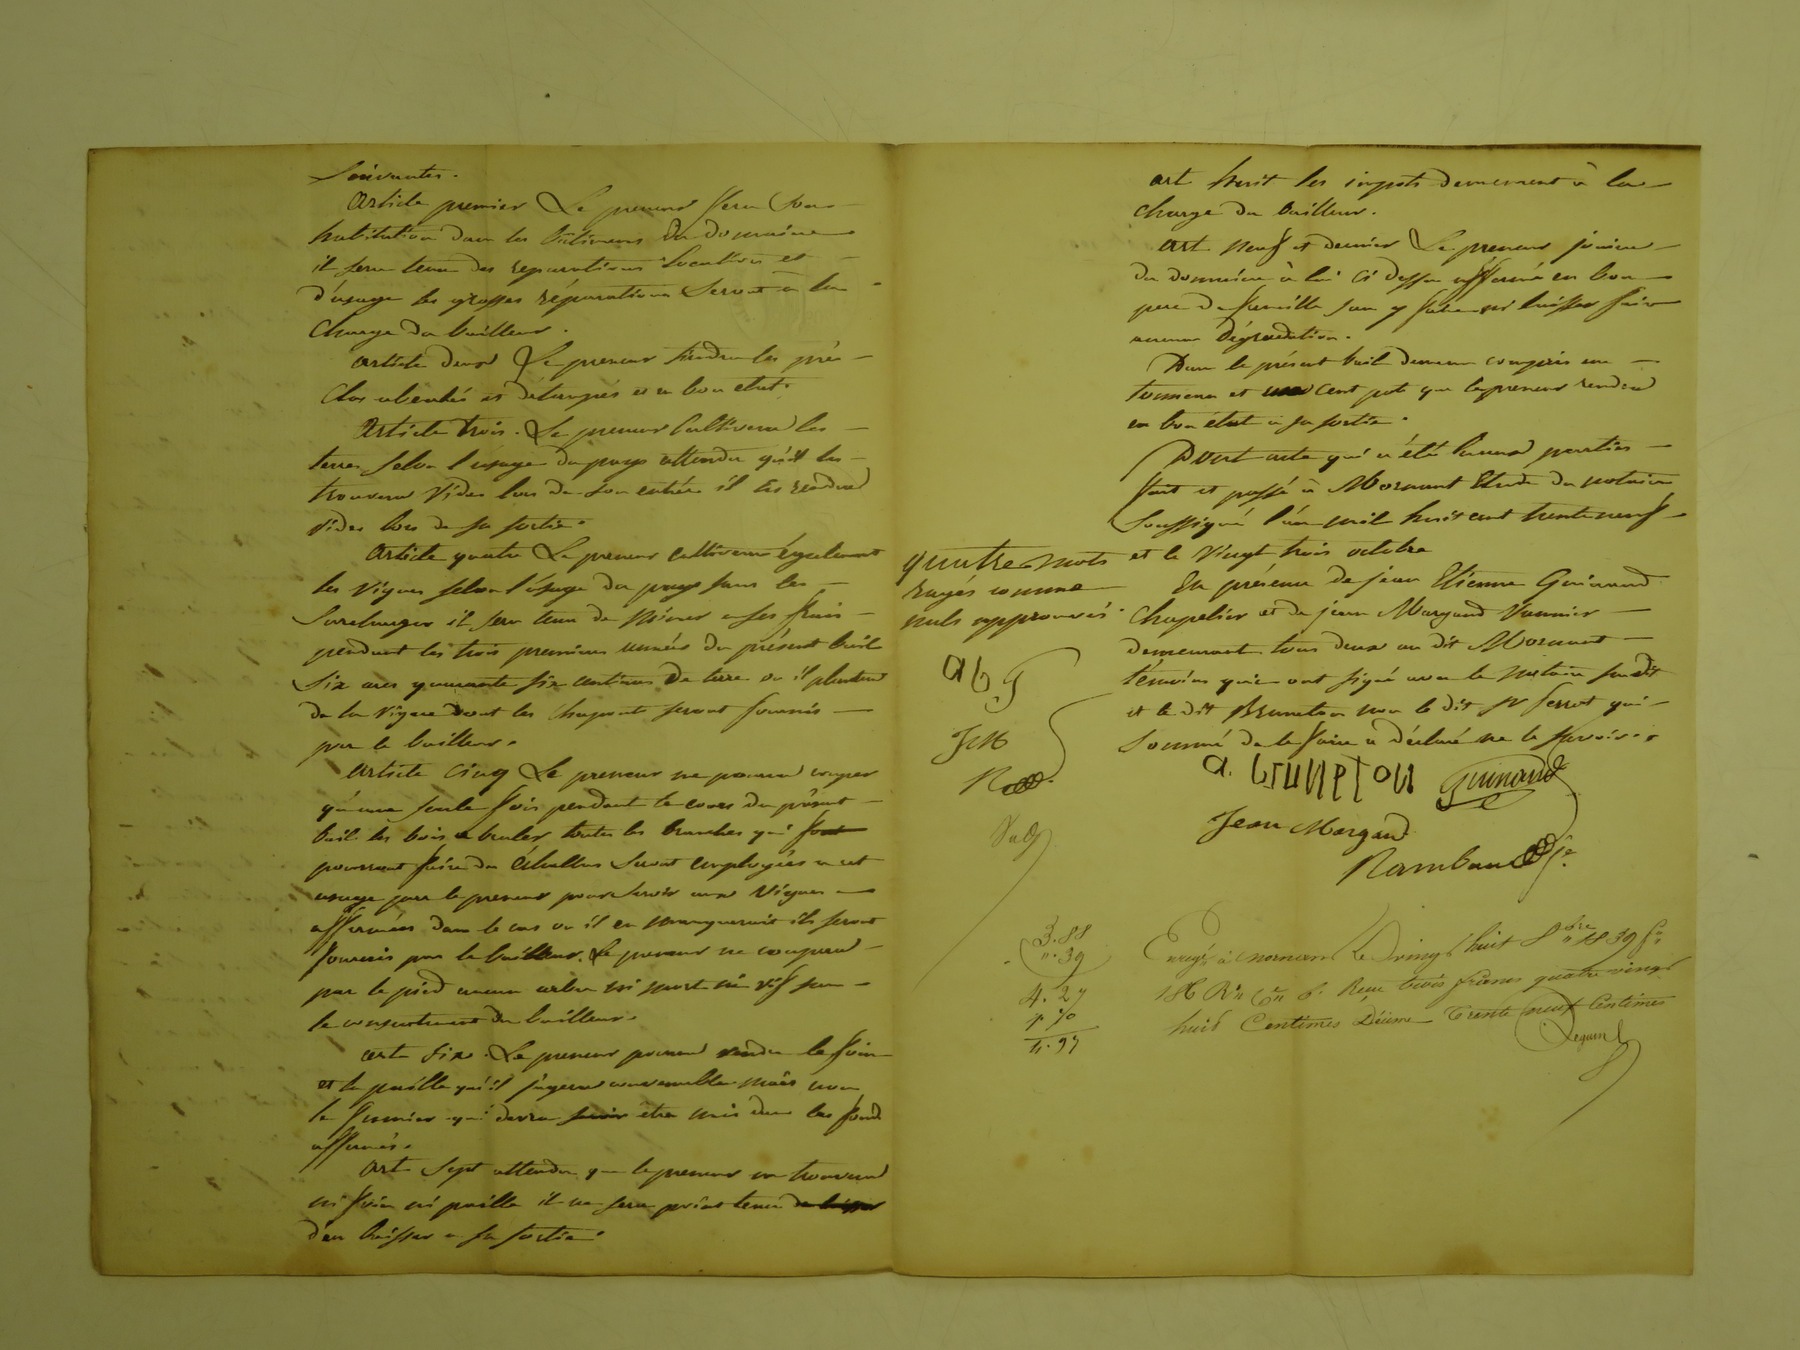 Suivantes.
Article premier Le preneur fera son
habitation dans les bâtimens du domaine
il sera tenu des reparations locatives et
d'usage les grosses réparations seront à la
charge du bailleur.
Article deux Le preneur tiendra les prés
clos abenlés et détaupés et en bon etat.
Article trois. Le preneur cultivera les
terres selon l'usage du pays attendu qu'il les
trouvera vides lors de son entrée il les rendra
vides lors de sa sortie.
Article quatre Le preneur cultivera également
les vignes selon l'usage du pays sans les
Surcharger il sera tenu de miner a ses frais
pendant les trois premieres années du présent bail
Six ares quarante six centiares de terre ou il plantera
de la vigne dont les chapons seront fournis
par le bailleur.
Article cinq Le preneur ne pourra couper
qu'une seule fois pendant le cours du présent
bail les bois a bruler, toutes les branches qui font
pourront faire des échallas seront employées a cet
usage par le preneur pour servir aux vignes
affermées dans le cas ou il en manqueroit ils seront
fournis par le bailleur. Le preneur ne coupera
par le pied aucun arbre ni mort ni vif sans
le consentement du bailleur.
art Six. Le preneur pourra vendre le foin
et la paille qu'il jugera convenable mais non
le fumier qui devra servir être mis dans les fonds
affermés.
Art Sept attendu que le preneur ne trouvera
ni foin ni paille il ne sera point tenu de laisser
d'en laisser a sa sortie.
art huit les impots demeurent à la
charge du bailleur.
Art neuf et dernier Le preneur jouira
du domaine à lui ci dessus affermé en bon
pere de famille sans y faire ni laisser faire
aucune dégradation.
Dans le présent bail demeure compris un
tonneau et cent pots que le preneur rendra
en bon état a sa sortie.
Dont acte qui a été lu aux parties
fait et passé à Mornant Etude du notaire
Soussigné l'an mil huit cent trente neuf
et le vingt trois octobre
En présence de jean Etienne Guinand
Chapelier et de jean Margand Vannier
demeurant tous deux au dit Mornant
témoins qui ont signé avec le notaire susdit
et le dit Bruneton non le dit Sr ferrot qui
Sommé de le faire a déclaré ne le savoir.
quatre mots
rayés comme
nuls approuvés.
a b G
J M
R
a. bruneton Guinand
Jean Margand
Rambaud
3. 88
". 39
4. 27
" 70
4. 97
Enregé à mornant Le vingt huit 8bre 1839 fo
186 Ro Co 6. Reçu trois francs quatre vingt
huit Centimes Décime Trente neuf Centimes